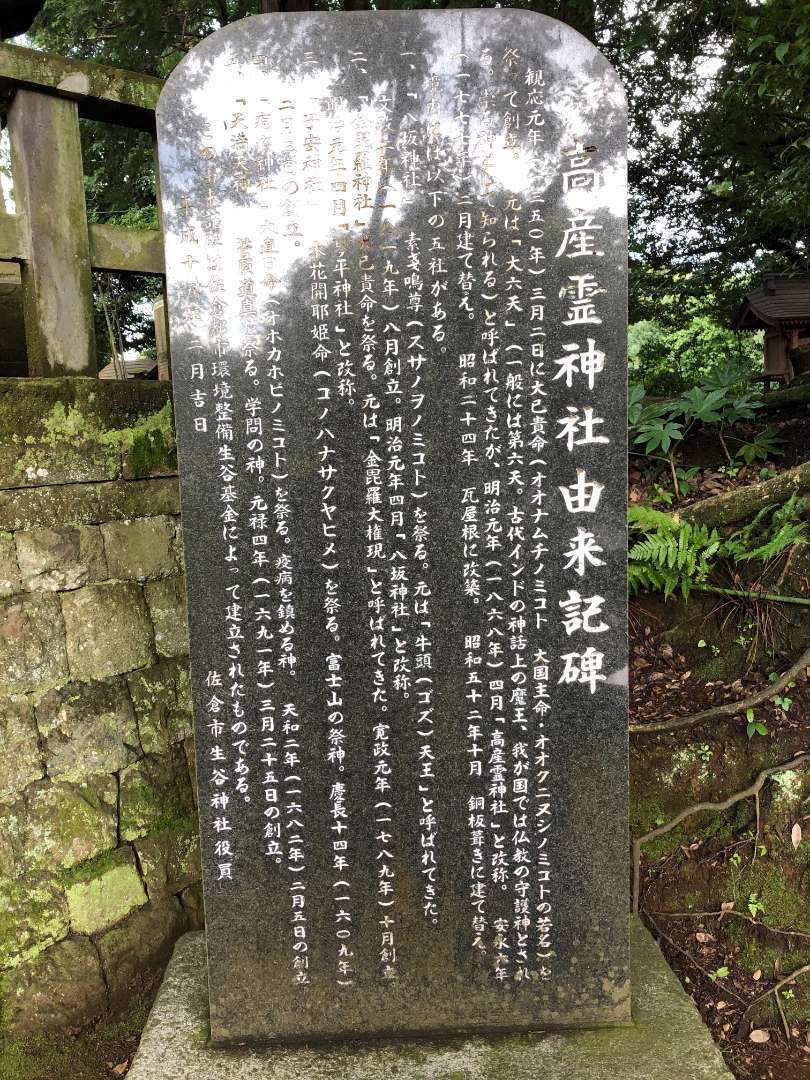 高産霊神社由来記碑
観応元年(一三五〇年)三月二日に大己貴命(オオナムチノミコト 大国主命・オオクニヌシノミコトの若名)を
祭って創立。元は「大六天」(一般には第六天。古代インドの神話上の魔王、我が国では仏教の守護神とされ
る。 として知られる)と呼ばれてきたが、明治元年(一八六八年)四月「高産霊神社」と改称。 安永六年
(一七七七年)二月建て替え。 昭和二十四年 瓦屋根に改築。 昭和五十二年十月 銅板葺きに建て替え。
は以下の五社がある。
一、「八坂神社」 素戔鳴尊(スサノヲノミコト)を祭る。元は「牛頭(ゴズ)天王」と呼ばれてきた。
(一八一九年)八月創立。明治元年四月「八坂神社」と改称。
二、「金毘羅神社」大己貴命を祭る。元は「金毘羅大権現」と呼ばれてきた。寛政元年(一七八九年)十月創立
明治元年四月「琴平神社」と改称。
三、「子安神社」 木花開耶姫命(コノハナサクヤヒメ)を祭る。富士山の祭神。慶長十四年(一六〇九年)
二月 日の創立。
神社」 命(オホカホヒノミコト)を祭る。疫病を鎮める神。 天和二年(一六八二年)二月五日の創立
「天満天神」 菅原道真を祭る。学問の神。元禄四年(一六九一年)三月二十五日の創立。
この 佐倉市環境整備生谷基金によって建立されたものである。
平成十 年二月吉日
佐倉市生谷神社役員